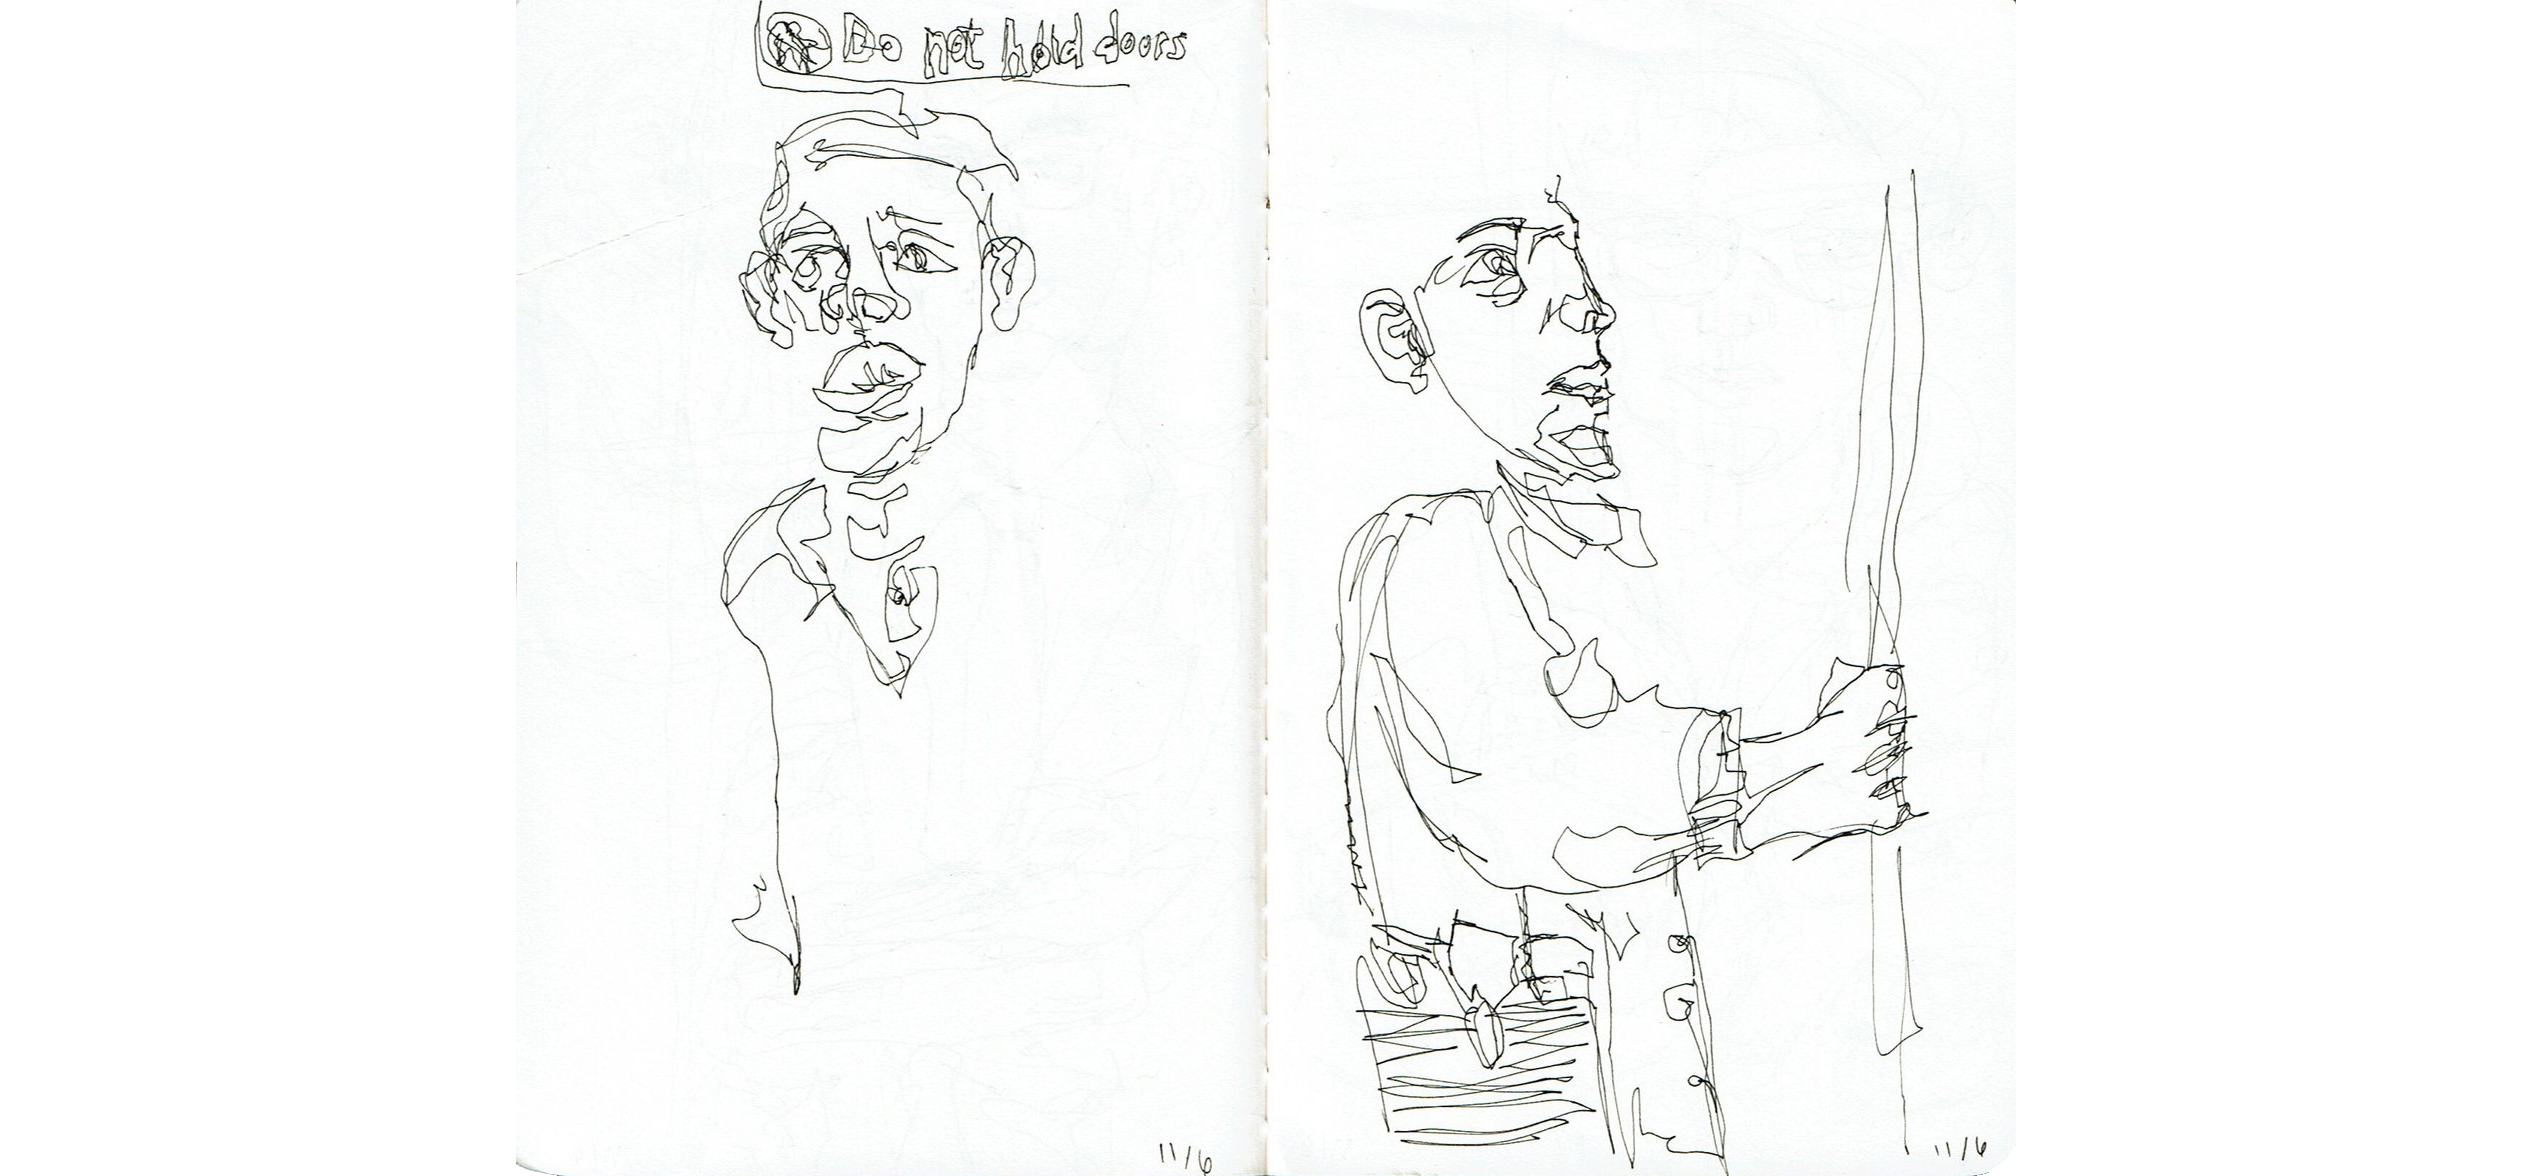 Do not hold doors
11/6
11/6